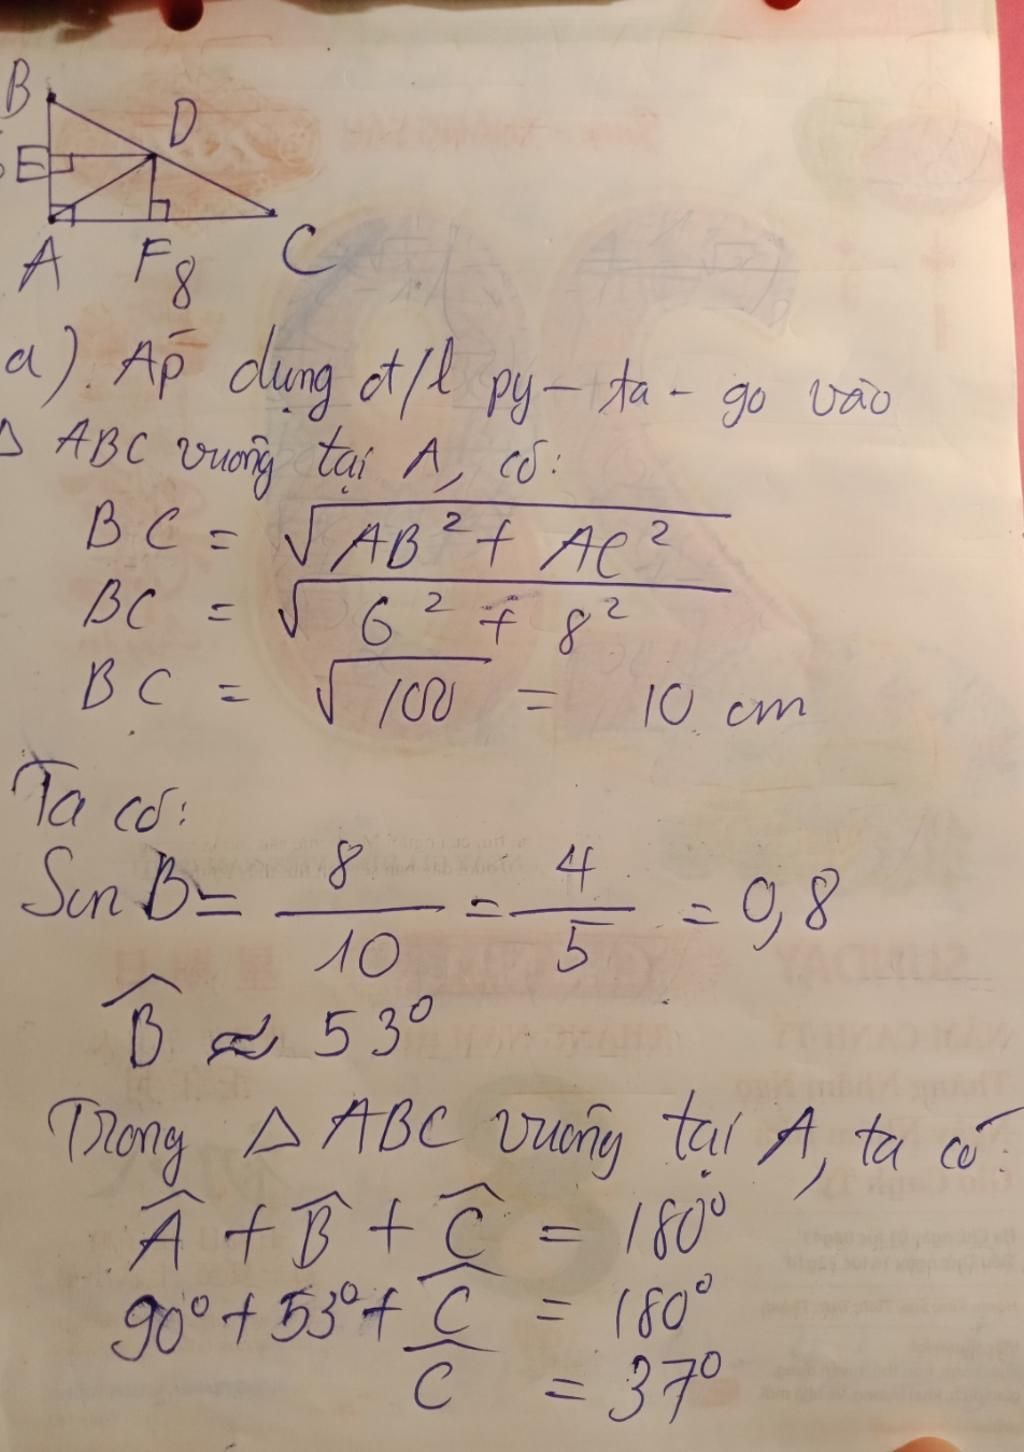 B
D
E
A F 8 C
a). Áp dụng đ/l py-ta-go vào
Δ ABC vuông tại A, có:
BC = √AB² + AC²
BC = √6² + 8²
BC = √100 = 10 cm
Ta có:
Sin B = 8/10 = 4/5 = 0,8
B̂ ≈ 53⁰
Trong Δ ABC vuông tại A, ta có:
Â + B̂ + Ĉ = 180⁰
90⁰ + 53⁰ + Ĉ = 180⁰
Ĉ = 37⁰